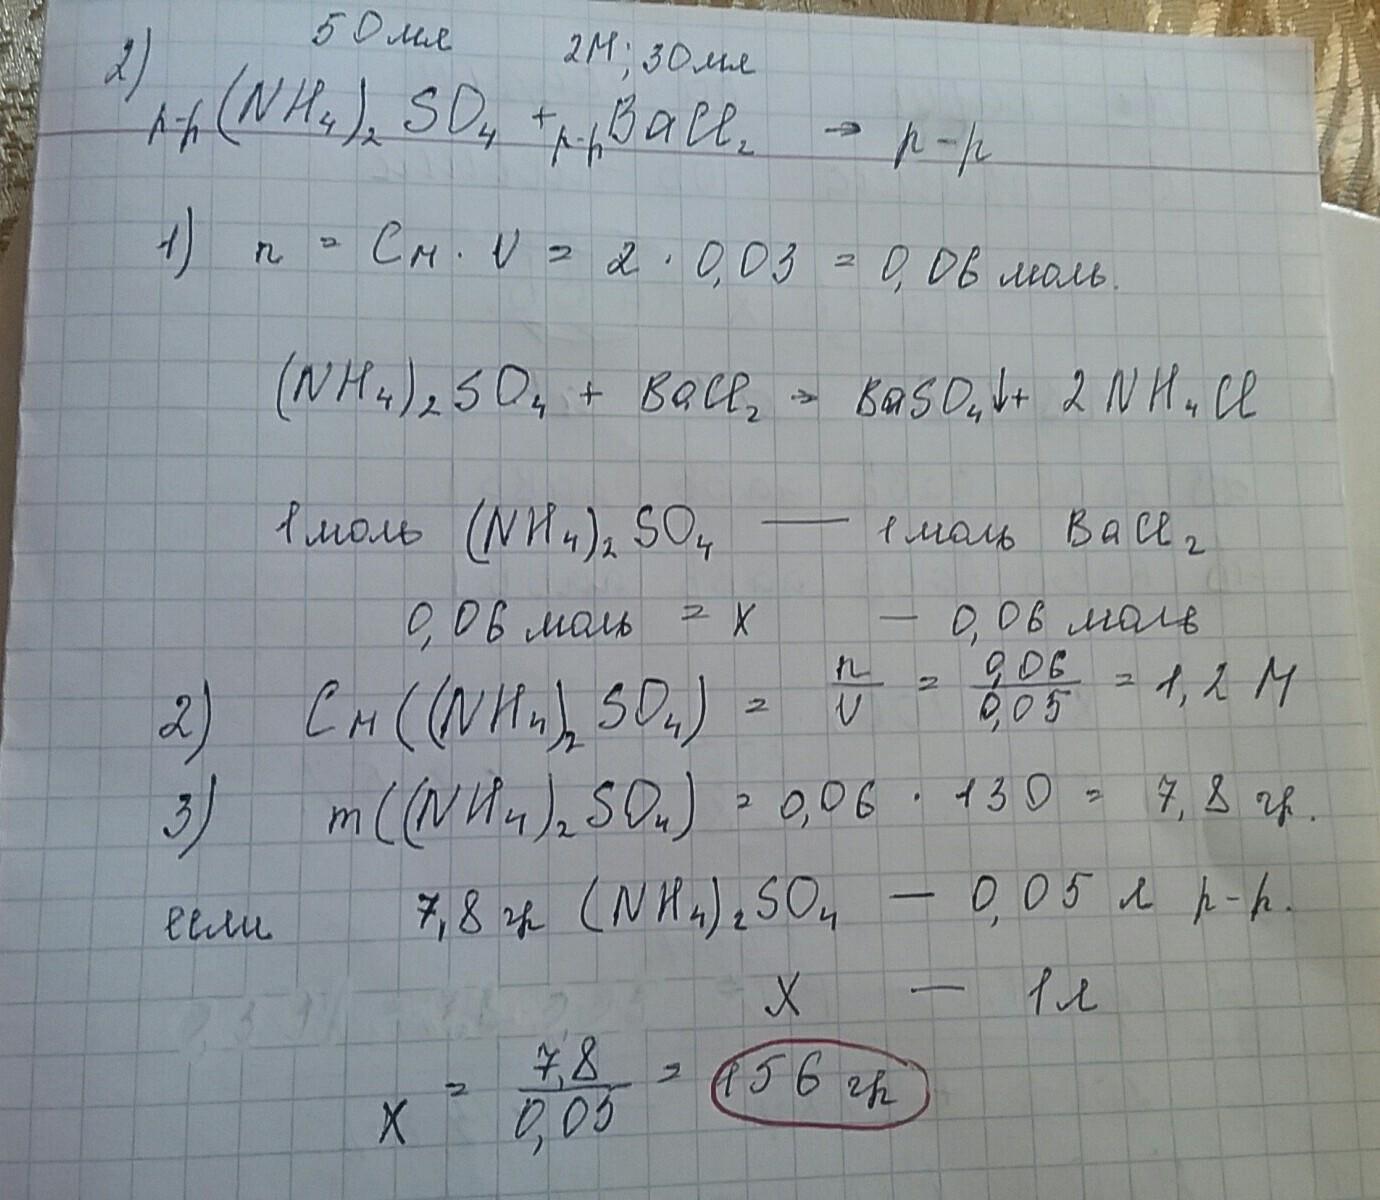 50 мл 2М; 30 мл
2) р-р (NH₄)₂SO₄ + р-р BaCl₂ → р-р
1) n = Cм · V = 2 · 0,03 = 0,06 моль.
(NH₄)₂SO₄ + BaCl₂ → BaSO₄↓ + 2NH₄Cl
1 моль (NH₄)₂SO₄ — 1 моль BaCl₂
0,06 моль = x — 0,06 моль
2) Cм((NH₄)₂SO₄) = n/V = 0,06/0,05 = 1,2 М
3) m((NH₄)₂SO₄) = 0,06 · 130 = 7,8 гр.
если 7,8 гр (NH₄)₂SO₄ — 0,05 л р-р.
X — 1л
X = 7,8/0,05 = 156 гр